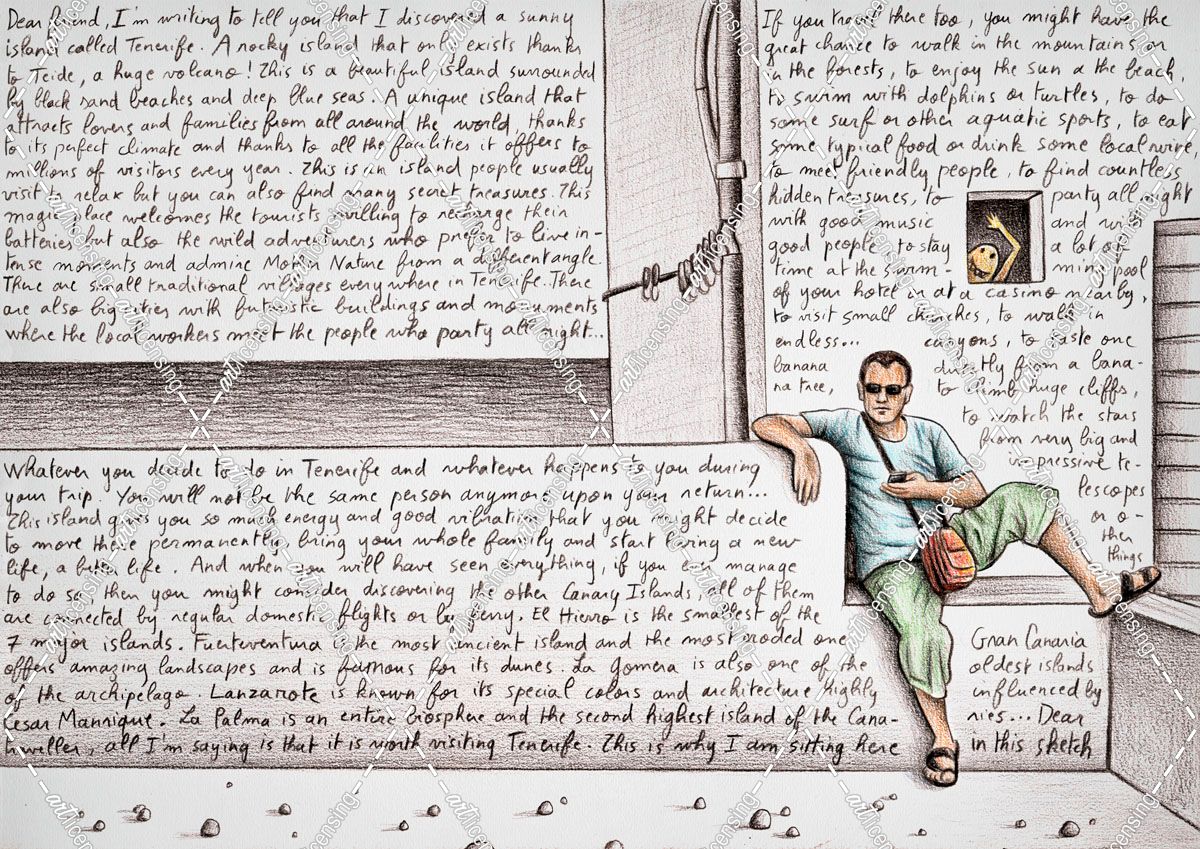 Dear friend, I'm writing to tell you that I discovered a sunny
island called Tenerife. A rocky island that only exists thanks
to Teide, a huge volcano! This is a beautiful island surrounded
by black sand beaches and deep blue seas. A unique island that
attracts lovers and families from all around the world, thanks
to its perfect climate and thanks to all the facilities it offers to
millions of visitors every year. This is an island people usually
visit to relax but you can also find many secret treasures. This
magic place welcomes the tourists willing to recharge their
batteries but also the wild adventurers who prefer to live in-
tense moments and admire Mother Nature from a different angle.
There are small traditional villages everywhere in Tenerife. There
are also big cities with futuristic buildings and monuments
where the local workers meet the people who party all night...
If you travel there too, you might have the
great chance to walk in the mountains or
in the forests, to enjoy the sun a the beach,
to swim with dolphins or turtles, to do
some surf or other aquatic sports, to eat
some typical food or drink some local wine,
to meet friendly people, to find countless
hidden treasures, to party all night
with good music and with
good people, to stay a lot of
time at the swim- ming pool
of your hotel or at a casino nearby,
to visit small churches, to walk in
endless... canyons, to taste one
banana directly from a bana-
na tree, to climb huge cliffs,
to watch the stars
from very big and
impressive te-
lescopes
or o-
ther
things
Whatever you decide to do in Tenerife and whatever happens to you during
your trip. You will not be the same person anymore upon your return...
This island gives you so much energy and good vibration that you might decide
to move there permanently, bring your whole family and start living a new
life, a better life. And when you will have seen everything, if you ever manage
to do so, then you might consider discovering the other Canary Islands, all of them
are connected by regular domestic flights or by ferry. El Hierro is the smallest of the
7 major islands. Fuerteventura is the most ancient island and the most eroded one
offers amazing landscapes and is famous for its dunes. La Gomera is also one of the
of the archipelago. Lanzarote is known for its special colors and architecture highly
Cesar Manrique. La Palma is an entire biosphere and the second highest island of the Cana-
traveller, all I'm saying is that it is worth visiting Tenerife. This is why I am sitting here
Gran Canaria
oldest islands
influenced by
ries... Dear
in this sketch
artlicensing